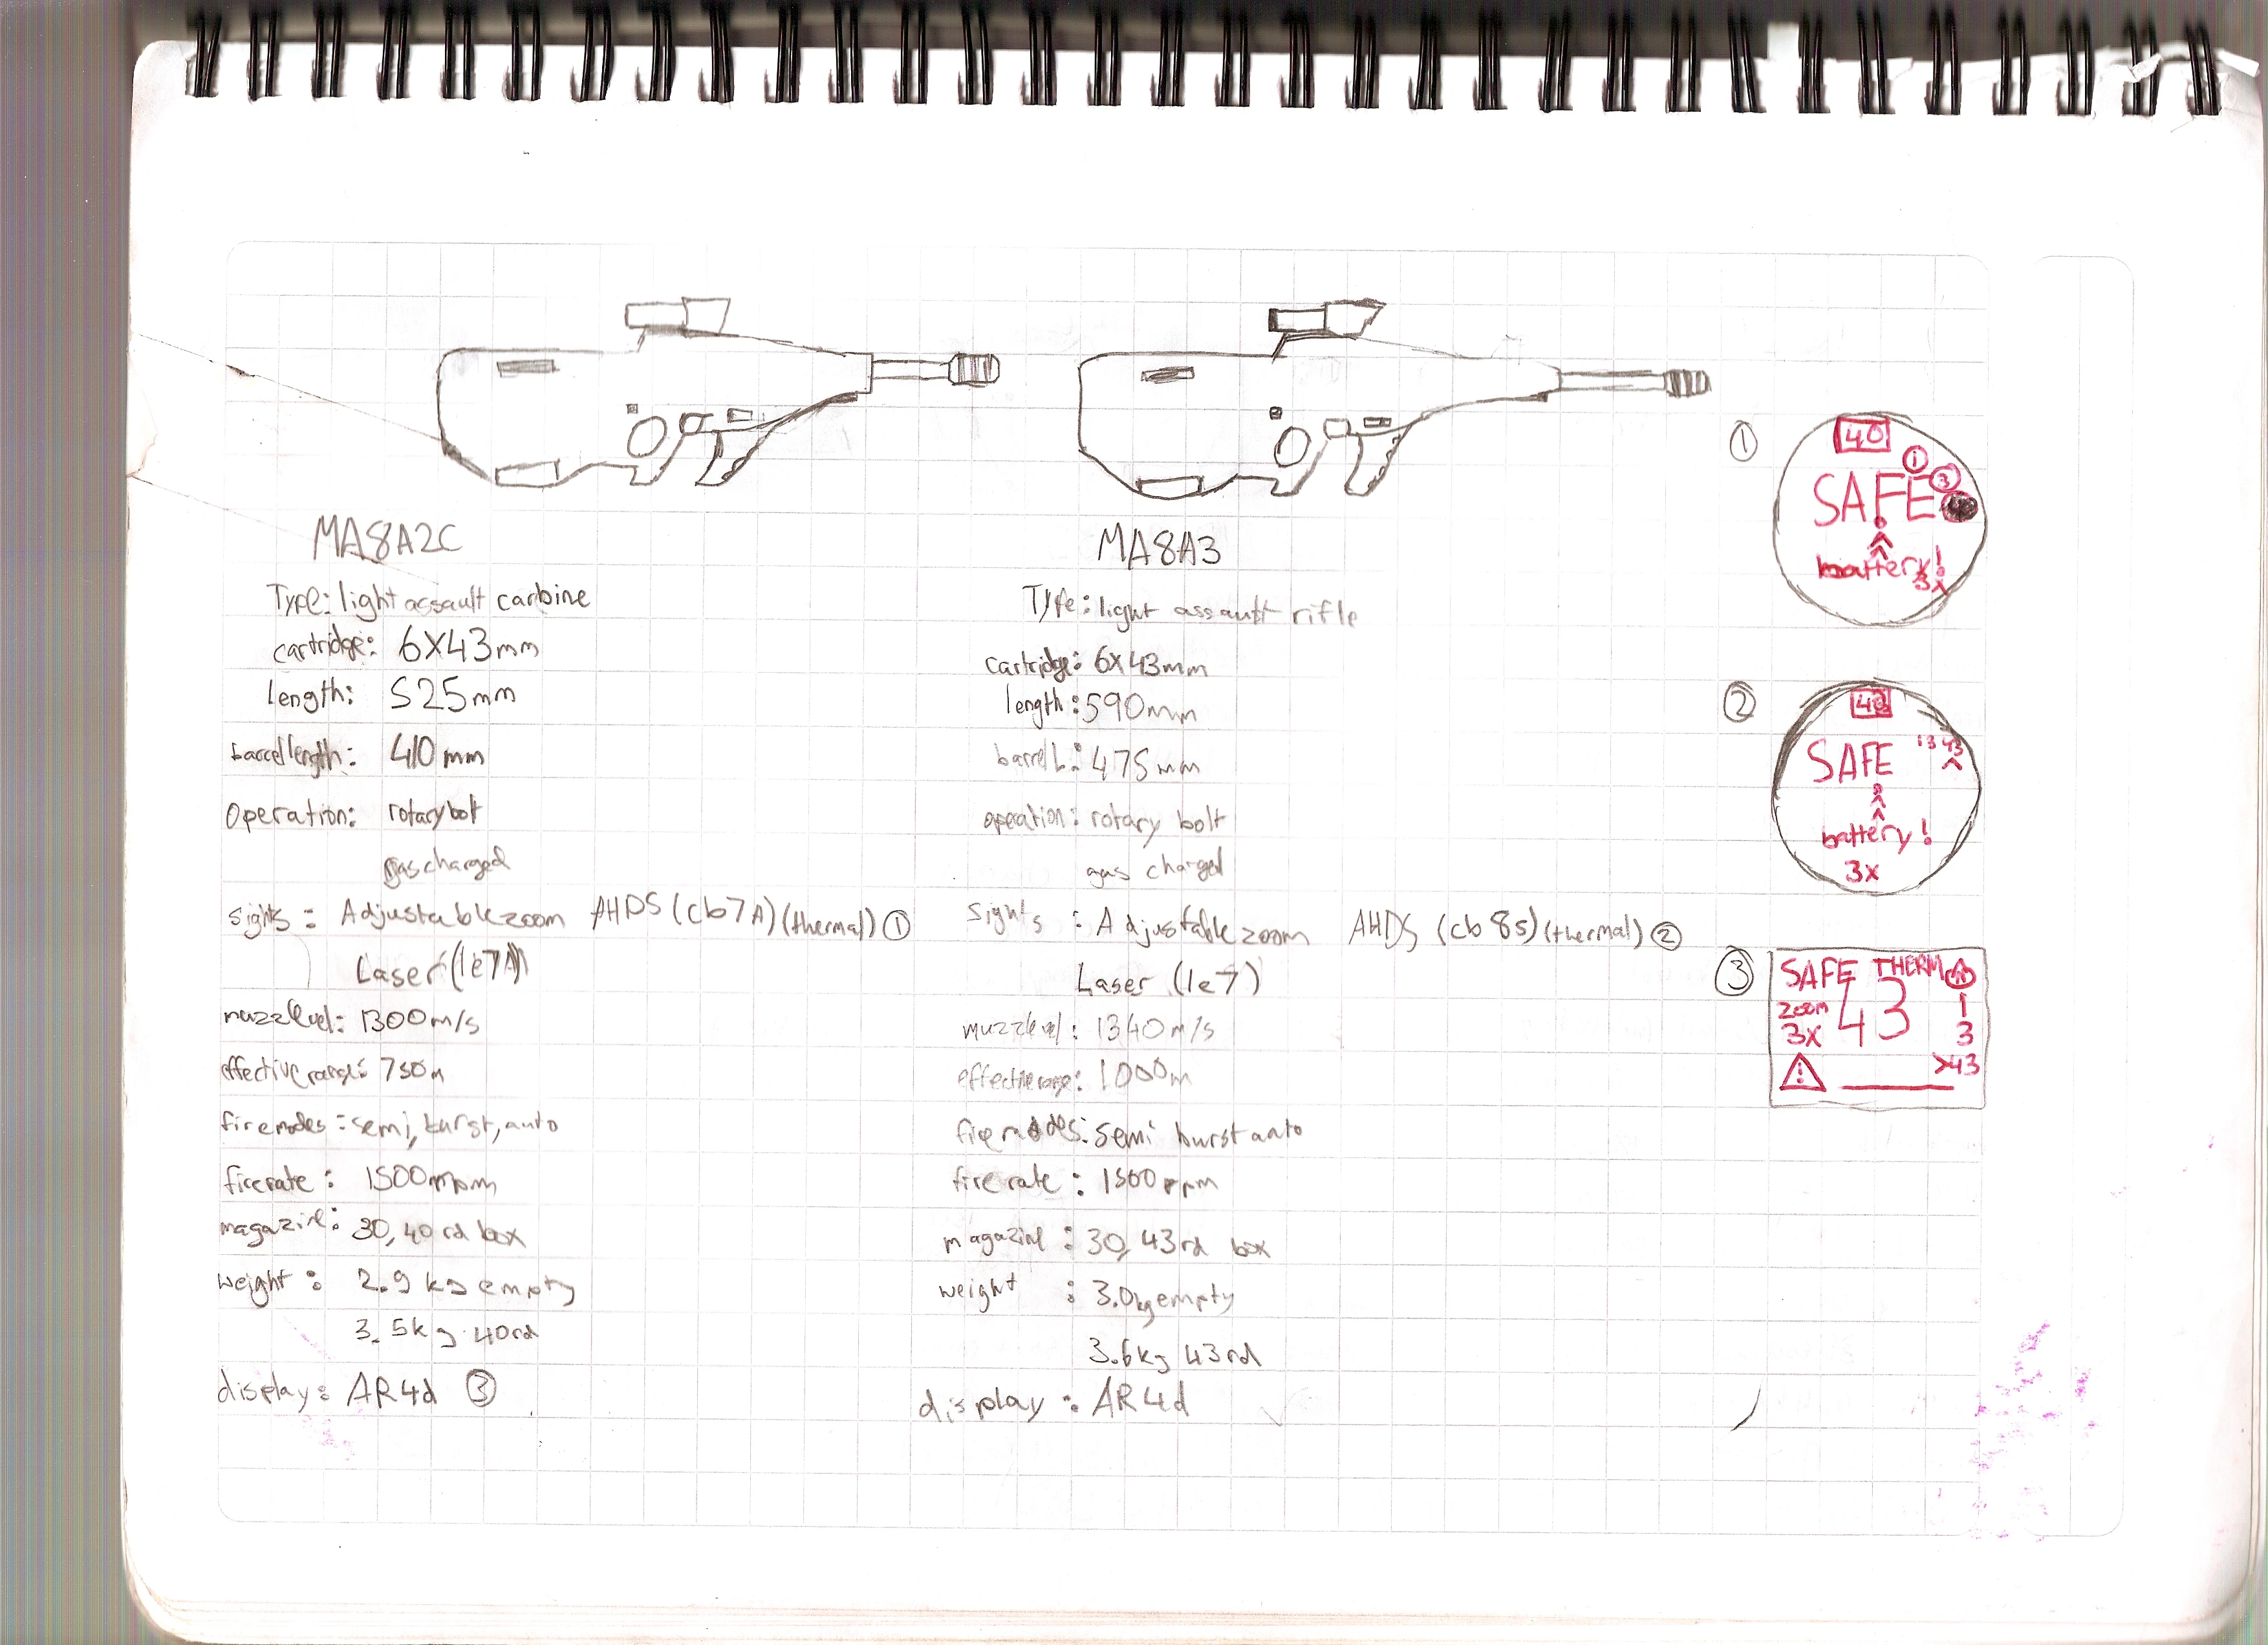 MA8A2C
Type: light assault carbine
cartridge: 6X43mm
length: 525mm
barrel length: 410mm
Operation: rotary bolt
gas charged
sights: Adjustable zoom AHDS (cb7A) (thermal) ①
Laser (le7A)
muzzle vel: 1300m/s
effective range: 750m
fire modes: semi, burst, auto
fire rate: 1500rpm
magazine: 30, 40 rd box
weight: 2.9 kg empty
3.5kg 40rd
display: AR4d ③
MA8A3
Type: light assault rifle
cartridge: 6X43mm
length: 590mm
barrel L: 475mm
operation: rotary bolt
gas charged
sights: Adjustable zoom AHDS (cb8s) (thermal) ②
Laser (le7)
muzzle vel: 1340m/s
effective range: 1000m
fire modes: semi burst auto
fire rate: 1500rpm
magazine: 30, 43rd box
weight: 3.0kg empty
3.6kg 43rd
display: AR4d
①
40
1
SAFE 3
battery!
3x
②
SAFE 1 3 43
battery!
3x
③
SAFE THERM A
zoom 43 1
3x 3
! >43